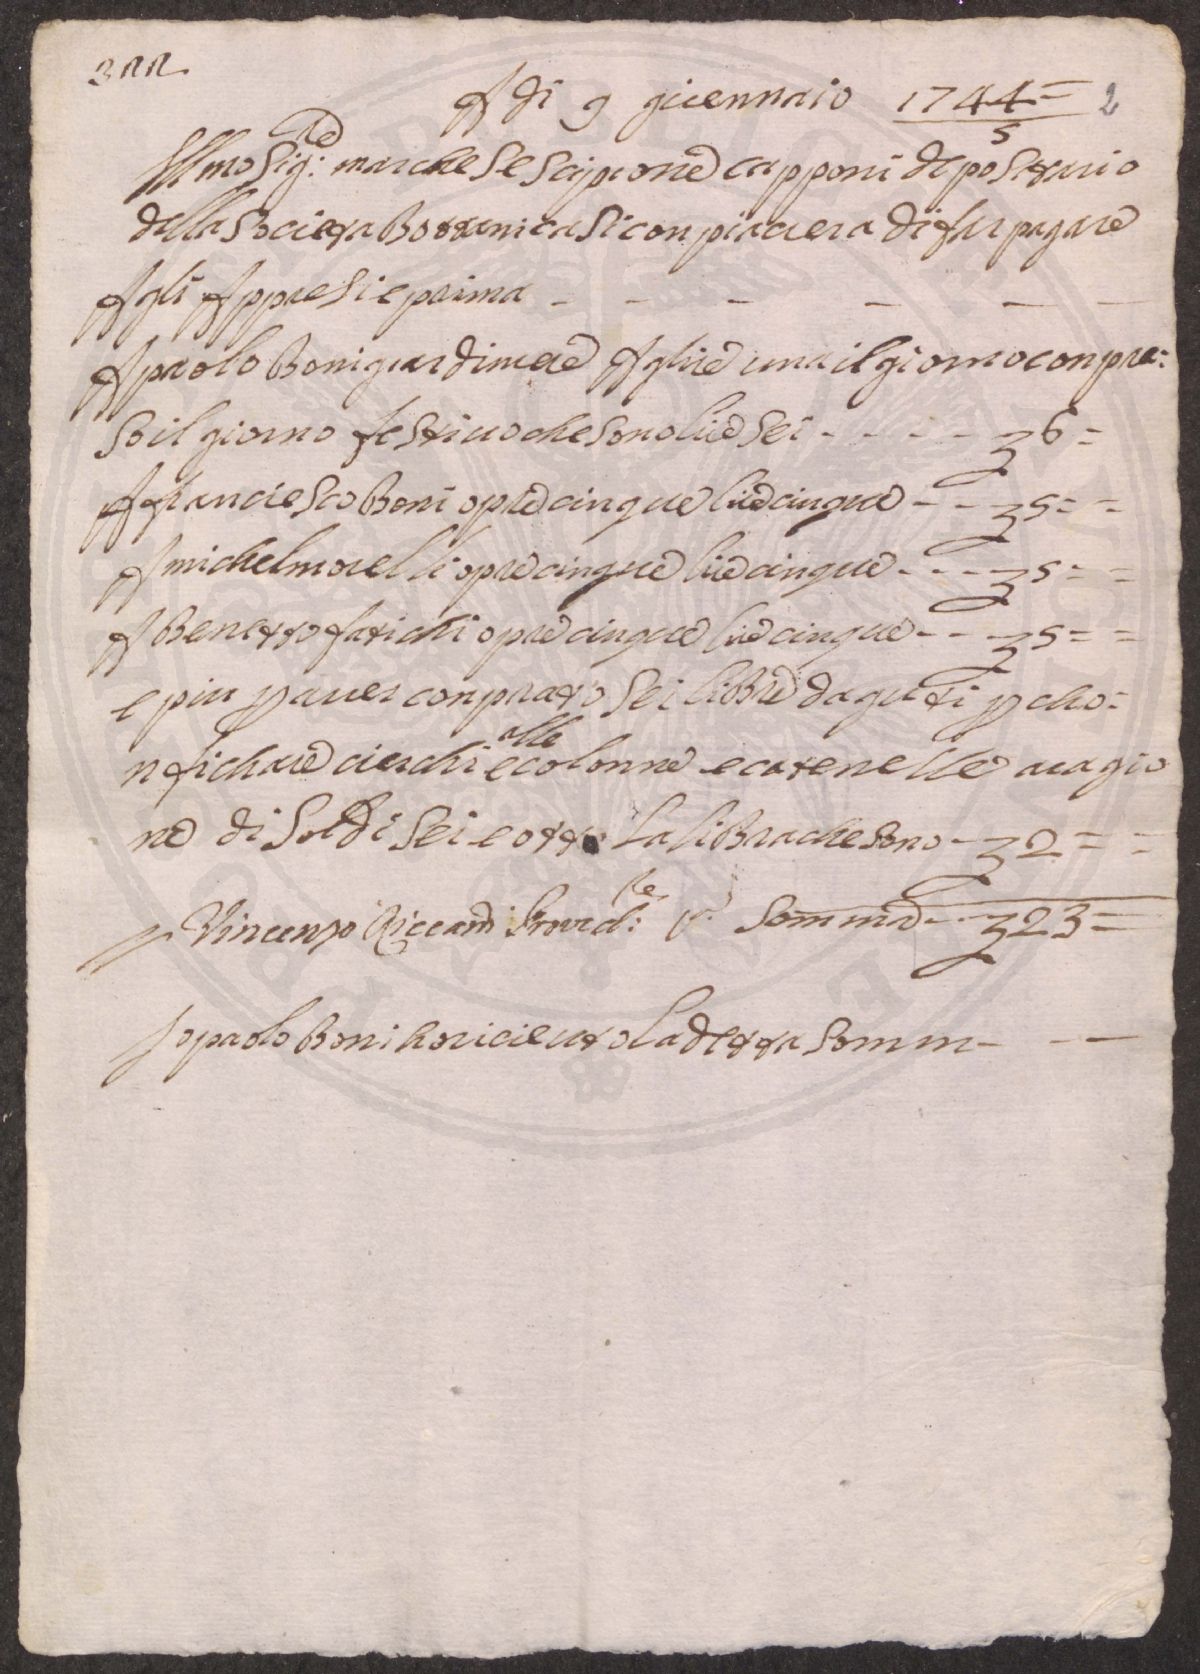 A di 9 giuennaio 1744= 2
5
Ill mo Sig:re marchese Scipione capponi depositario
della Societa Bottanica Si conpiacera di far pagare
A gli Appresi e prima - - - - - -
A paolo Boni giardiniere A lire una il giorno conpre:
So il giorno festiuo che sono lire Sei - - - - 6 =
A franciesco Boni opre cinque lire cinque - - 5 = =
A michel morelli opre cinque lire cinque - - - 5 = =
A Benetto fatichi opre cinque lire cinque - - 5 = =
e piu p auer conprato Sei libre d aguti p cho:
nfichare cierchi alle colonne e catenelle a ragio
ne di Soldi Sei e otto La libra che sono - 2 = =
Vincenzo Riccardi Proved:re Somma - - 23 =
Io paolo Boni ho riceuto La detta Somm- - -